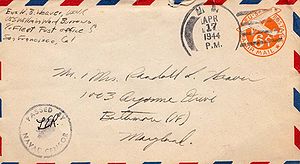 Eva H. B. Weaver
USS William Ward Burrows
℅ Fleet Post Office
San Francisco, Cal
APR
17
1944
P.M.
6¢
AIR MAIL
Mr. & Mrs. Randall L. Weaver
1003 Argonne Drive
Baltimore (18)
Maryland.
PASSED
NAVAL CENSOR